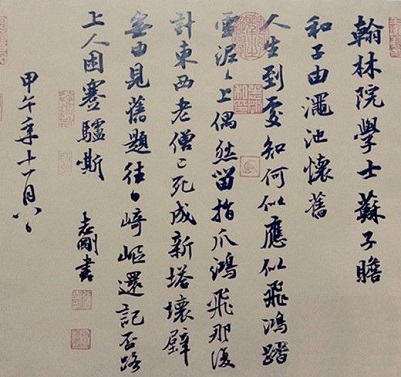 翰林院學士蘇子瞻
和子由澠池懷舊
人生到處知何似應似飛鴻踏
雪泥々上偶然留指爪鴻飛那復
計東西老僧已死成新塔壞壁
無由見舊題往日崎嶇還記否路
上人困蹇驢嘶 志剛書
甲午年十一月八日